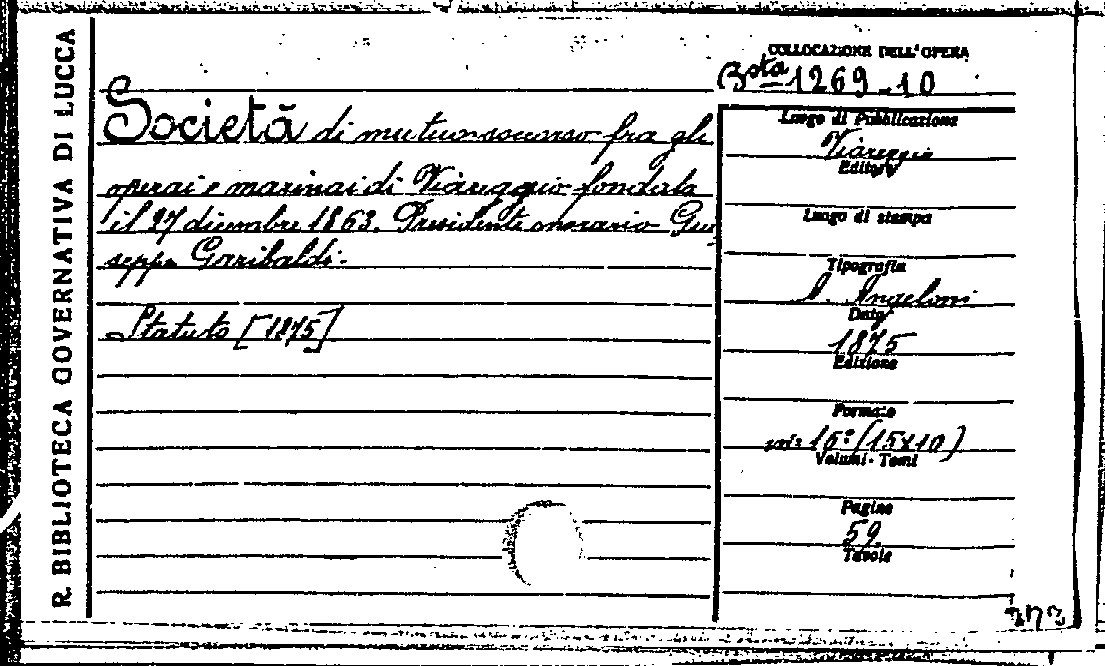 R. BIBLIOTECA GOVERNATIVA DI LUCCA
Società di mutuo soccorso fra gli
operai e marinai di Viareggio fondata
il 27 dicembre 1863. Presidente onorario Giu
seppe Garibaldi.
Statuto [1875]
COLLOCAZIONE DELL'OPERA
Bsta 1269-10
Luogo di Pubblicazione
Viareggio
Editore
Luogo di stampa
Tipografia
Angeloni
Data
1875
Edizione
Formato
in 16° (15x10)
Volumi - Tomi
Pagine
59
Tavole